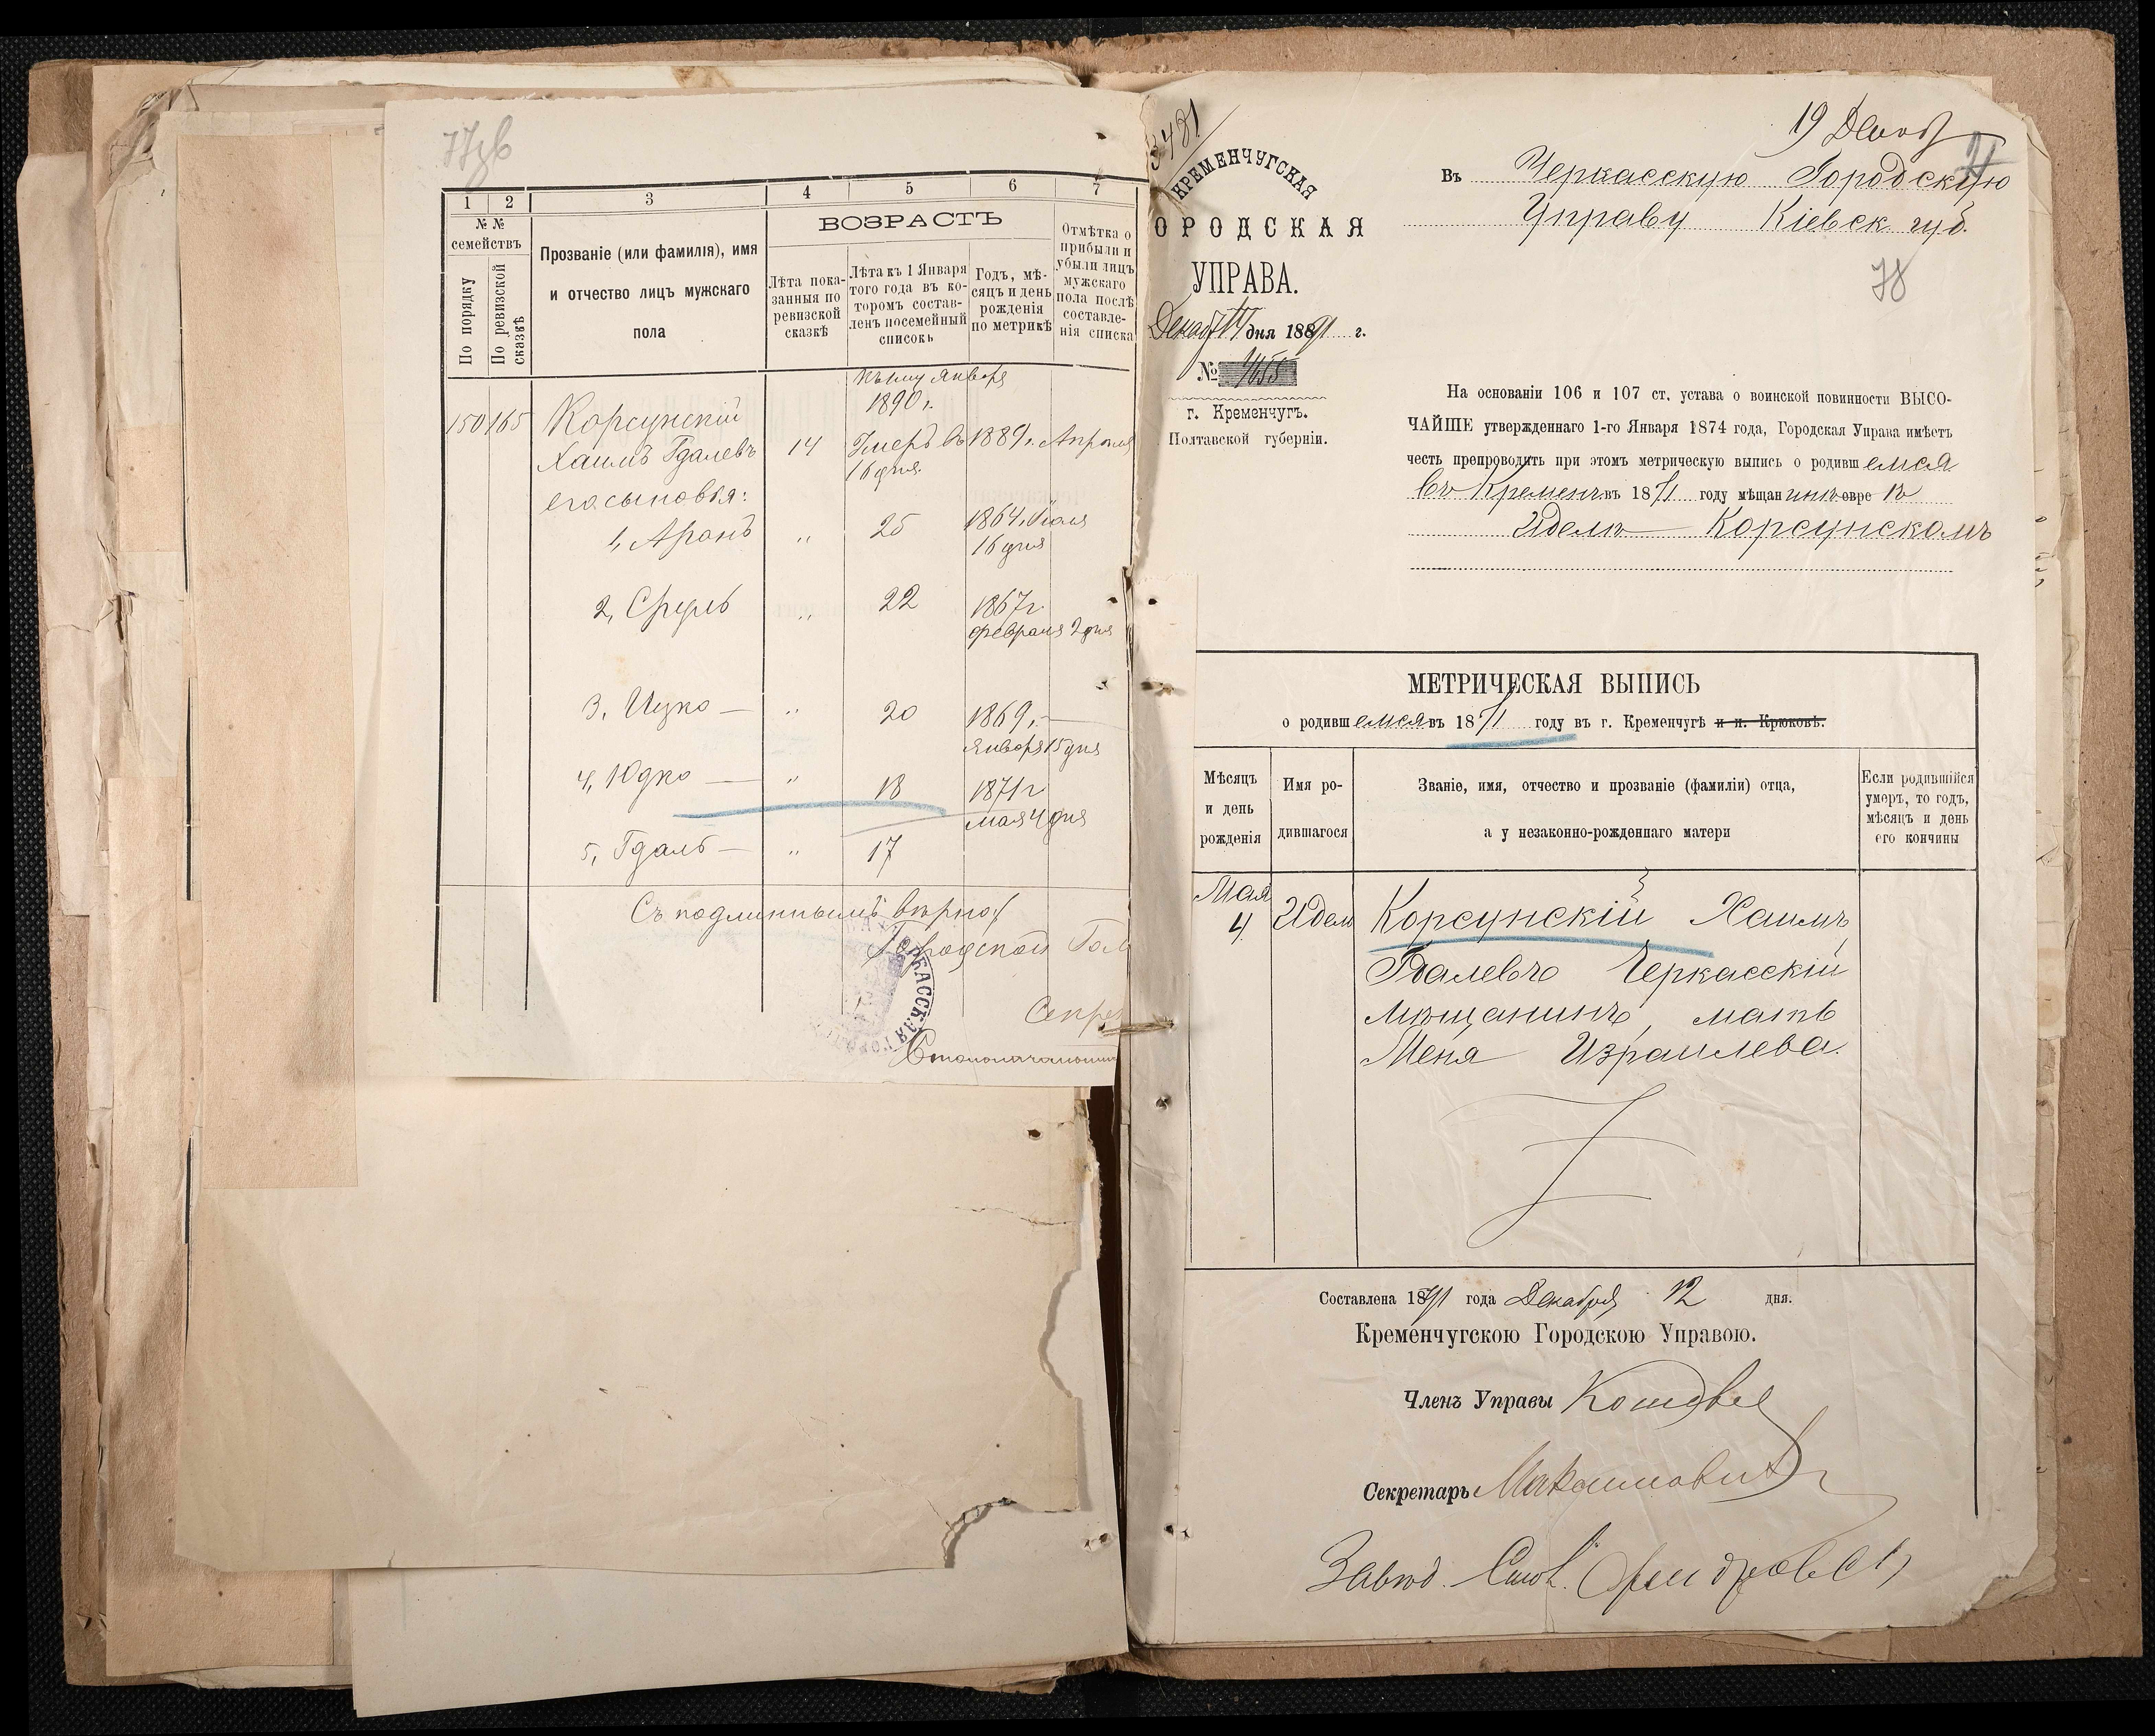 77об
1 2 3 4 5 6 7
№ №
семействъ
По порядку
По ревизской сказкѣ
Прозваніе (или фамилія), имя
и отчество лицъ мужскаго
пола
ВОЗРАСТЪ
Лѣта пока-
занныя по
ревизской
сказкѣ
Лѣта къ 1 Января
того года въ ко-
торомъ состав-
ленъ посемейный
списокъ
Годъ, мѣ-
сяцъ и день
рожденія
по метрикѣ
Отмѣтка о
прибыли и
убыли лицъ
мужскаго
пола послѣ
составле-
нія списка
Января
1890 г.
150 165 Корсунскій
Хаимъ Гдалевъ 14 Умеръ въ 1889 г. Апрѣля
16 дня.
его сыновья:
1, Аронъ " 25 1864 г. Іюля
16 дня
2, Сруль " 22 1867 г.
февраля 2 дня
3, Ицко — " 20 1869 г. —
января 15 дня
4, Юдко — " 18 1871 г
мая 4 дня
5, Гдаль — " 17
Съ подлиннымъ вѣрно:
Городской Гол
Секре
Столоначальни
3481
КРЕМЕНЧУГСКАЯ
ОРОДСКАЯ
УПРАВА.
Декабр 14 дня 1891 г.
№ 4655
г. Кременчугъ.
Полтавской губерніи.
19 Декаб
Въ Черкасскую Городскую
Управу Кіевск. губ.
78
На основаніи 106 и 107 ст. устава о воинской повинности ВЫСО-
ЧАЙШЕ утвержденнаго 1-го Января 1874 года, Городская Управа имѣетъ
честь препроводить при этомъ метрическую выпись о родившемся
въ Кременч. въ 1871 году мѣщанинѣ евреѣ
Иделѣ — Корсунскомъ
МЕТРИЧЕСКАЯ ВЫПИСЬ
о родившемся въ 1871 году въ г. Кременчугѣ и п. Крюковѣ.
Мѣсяцъ
и день
рожденія
Имя ро-
дившагося
Званіе, имя, отчество и прозваніе (фамиліи) отца,
а у незаконно-рожденнаго матери
Если родившійся
умеръ, то годъ,
мѣсяцъ и день
его кончины
Мая
4 Идель Корсунскій Хаимъ
Гдалевъ Черкасскій
мѣщанинъ, мать
Меня Израилева.
Составлена 1891 года Декабря 12 дня.
Кременчугскою Городскою Управою.
Членъ Управы
Секретарь Максимович
Завѣд. Стол.